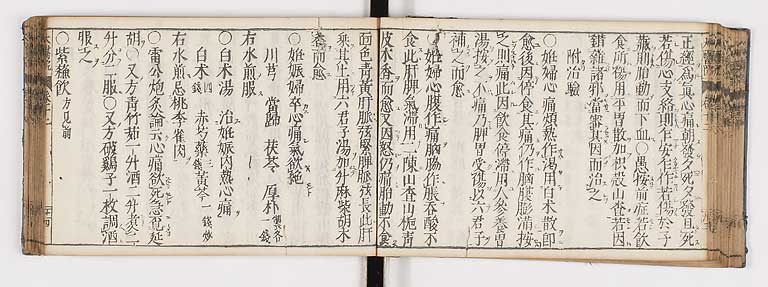 正經爲眞心痛朝發夕死夕發旦死
若傷心支絡則乍安乍作若傷於子
藏則胎動而下血〇愚按前症若飲
食所傷用平胃散加枳殼山查若因
錯雜諸邪當審其因而治之
附治驗
〇姙婦心痛煩熱作渴用白朮散卽
愈後因停食其痛仍作胸膜膨滿按
之則痛此因飲食停滯用人參養胃
湯按之不痛乃脾胃受傷以六君子
補之而愈
〇姙婦心腹作痛胸脇作脹吞酸不
食此肝脾氣滯用二陳山查山梔青
皮木香而愈又因怒仍痛胎動不食
面色青黃肝脈弦緊脾脈弦長此肝
乘其土用六君子湯加升麻柴胡木
香而愈
〇姙娠婦卒心痛氣欲絕
川芎 當歸 茯苓 厚朴製各一錢
右水煎服
〇白朮湯 治姙娠內熱心痛
白朮四錢 赤芍藥三錢 黃芩一錢炒
右水煎忌桃李雀肉
〇雷公炮炙論云心痛欲死急覓延
胡〇又方青竹茹一升酒二升煮
升分二服〇又方破鷄子一枚調酒
服之
〇紫蘇飲方見前